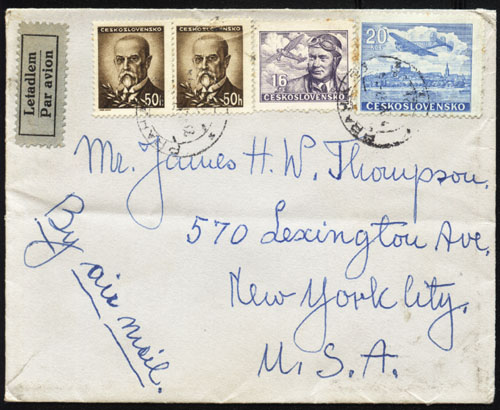 Letadlem
Par avion
ČESKOSLOVENSKO
50h
ČESKOSLOVENSKO
50h
16
ČESKOSLOVENSKO
20
ČESKOSLOVENSKO
Mr. James H. W. Thompson.
570 Lexington Ave.
New York City.
U. S. A.
By air mail.